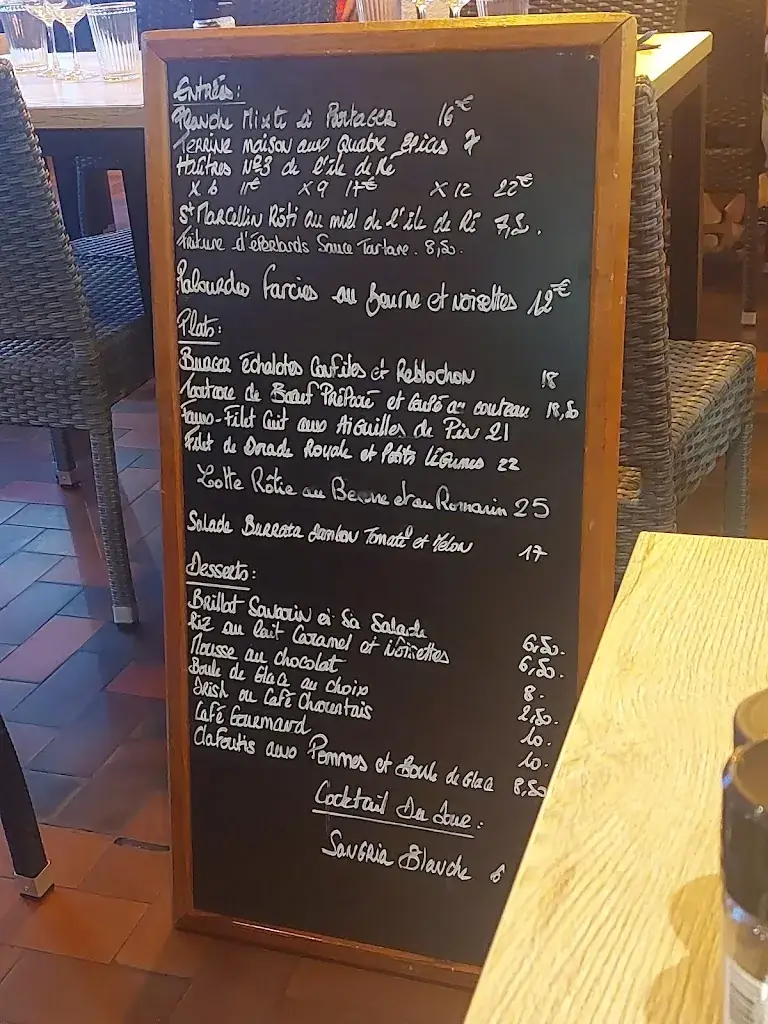 Entrées:
Planche Mixte à Partager 16€
Terrine maison aux Quatre Épices 7
Huîtres N°3 de l'île de Ré
x 6 11€ x 9 17€ x 12 22€
St Marcellin Rôti au miel de l'île de Ré 7,50.
Friture d'éperlands Sauce Tartare. 8,50.
Palourdes farcies au Beurre et noisettes 12€
Plats:
Burger échalotes Confites et Reblochon 18
Tartare de Bœuf Préparé et Coupé au couteau 18,50
Faux-Filet Cuit aux Aiguilles de Pin 21
Filet de Dorade Royale et Petits Légumes 22
Lotte Rôtie au Beurre et au Romarin 25
Salade Burrata Jambon Tomate et Melon 17
Desserts:
Brillat Savarin et Sa Salade 6,50.
Riz au lait Caramel et Noisettes 6,50.
Mousse au chocolat 8.
Boule de Glace au choix 2,50.
Irish ou Café Charentais 10.
Café Gourmand 10.
Clafoutis aux Pommes et Boule de Glace 8,50
Cocktail Du Jour:
Sangria Blanche 6